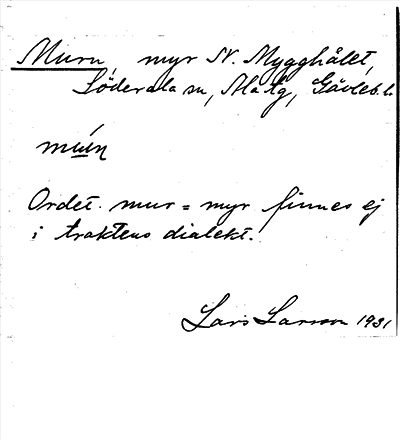 Murn, myr N. Mygghålet,
Söderala sn, Matg, Gävleb. l.
muın
Ordet mur = myr finnes ej
i traktens dialekt.
Lars Larsson 1931